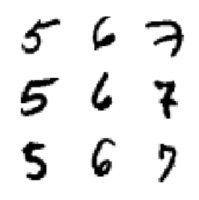 5 6 7
5 6 7
5 6 7